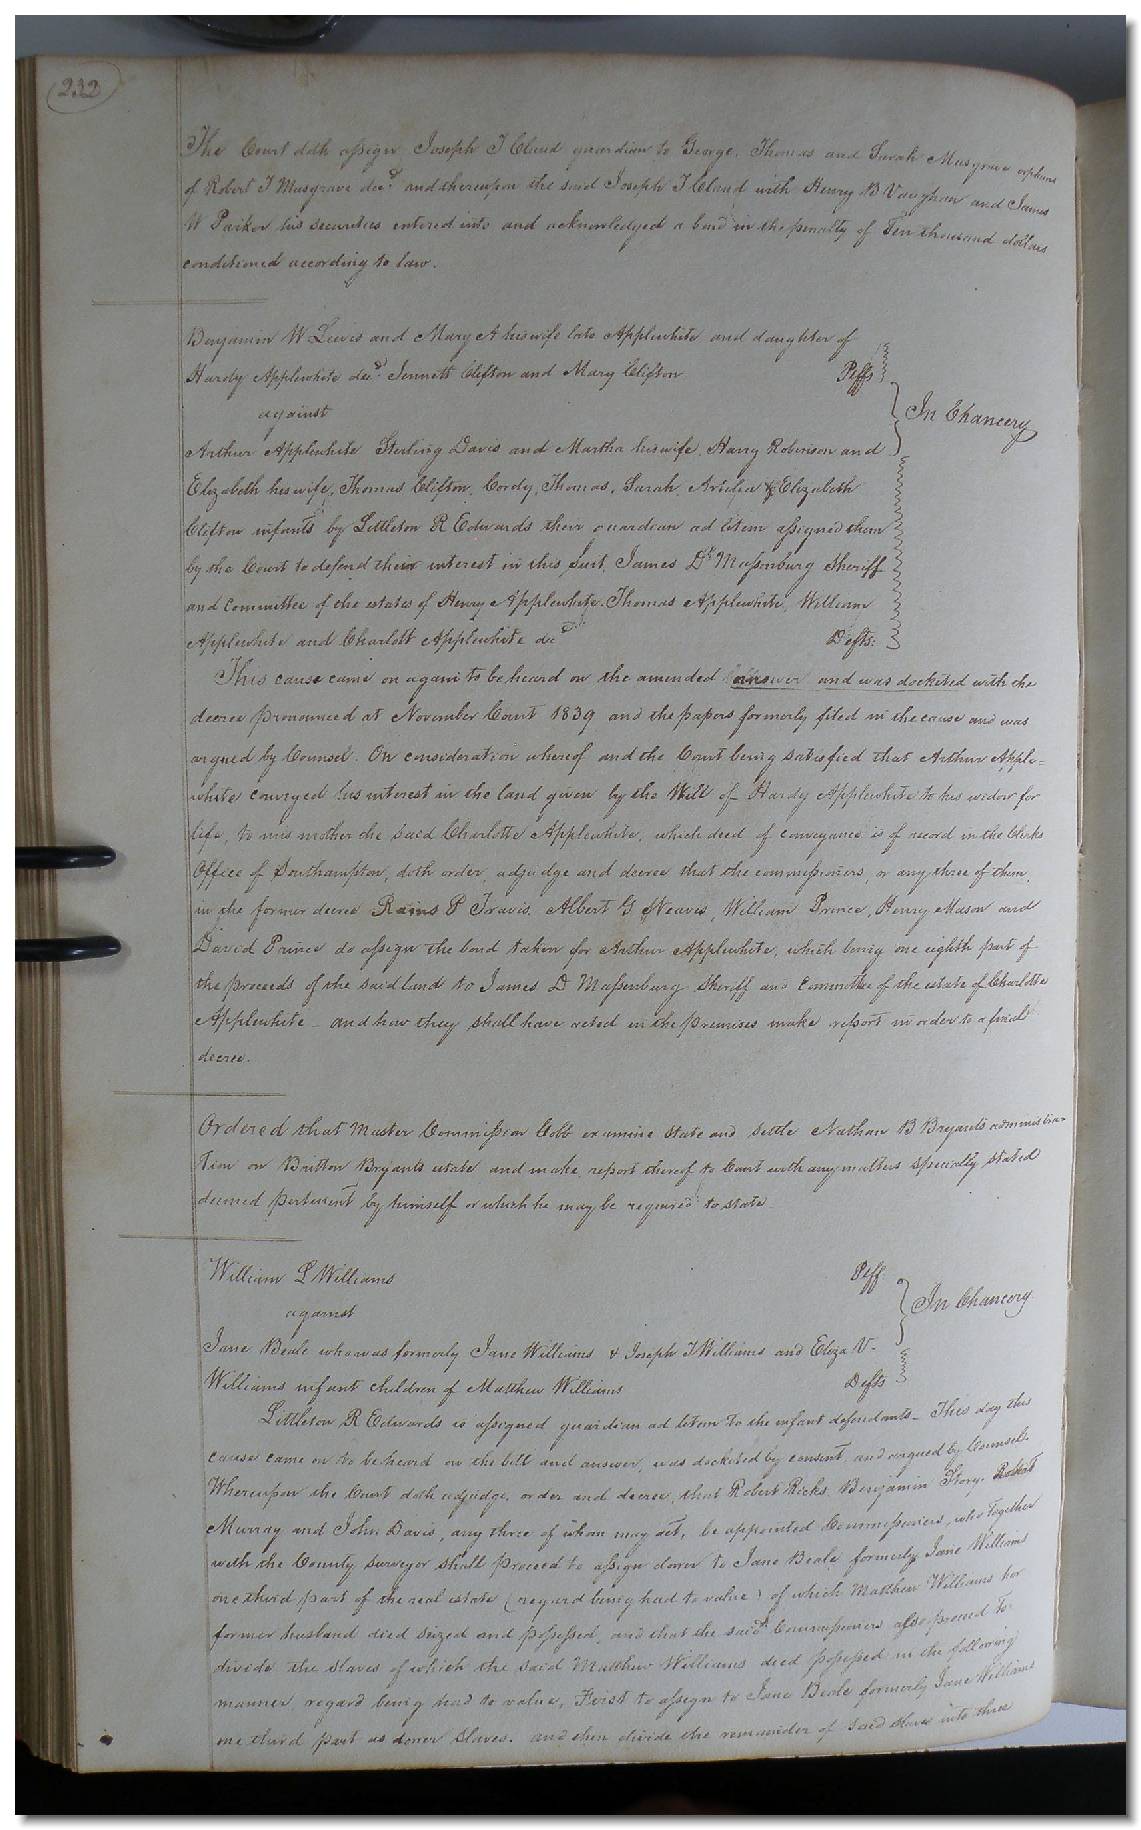 232
The Court doth assign Joseph T Claud guardian to George, Thomas and Sarah Musgrave orphans
of Robert T Musgrave decd. and thereupon the said Joseph T Claud with Henry B Vaughan and James
W Parker his securities entered into and acknowledged a bond in the penalty of Ten thousand dollars
conditioned according to law.
Benjamin W Lewis and Mary A his wife late Applewhite and daughter of
Hardy Applewhite decd. Jennett Clifton and Mary Clifton Plffs
against In Chancery
Arthur Applewhite Sterling Davis and Martha his wife, Harry Robinson and
Elizabeth his wife, Thomas Clifton, Cordy, Thomas, Sarah, & Elizabeth
Clifton infants by Littleton R Edwards their guardian ad litem assigned them
by the Court to defend their interest in this suit, James D. Massenburg Sheriff
and committee of the estates of Henry Applewhite, Thomas Applewhite, William
Applewhite and Charlott Applewhite decd Defts:
This cause came on again to be heard on the amended answer and was docketed with the
decree pronounced at November Court 1839 and the papers formerly filed in the cause and was
argued by Counsel. On consideration whereof and the Court being satisfied that Arthur Apple=
white conveyed his interest in the land given by the Will of Hardy Applewhite to his widow for
life, to his mother the said Charlotte Applewhite, which deed of conveyance is of record in the Clerks
Office of Southampton, doth order, adjudge and decree that the commissioners, or any three of them,
in the former decree Rains P Travis, Albert G Neavis, William Prince, Henry Mason and
David Prince do assign the bond taken for Arthur Applewhite, which being one eighth part of
the proceeds of the said land to James D Massenburg Sheriff and committee of the estate of Charlotte
Applewhite - and how they shall have acted in the premises make report in order to a final
decree.
Ordered that Master Commissioner Cobb examine state and settle Nathan B Bryants administra-
tion on Britton Bryants estate and make report thereof to Court with any matters specially stated
deemed pertinent by himself or which he may be required to state
William L Williams Plff
against In Chancery
Jane Beale who was formerly Jane Williams & Joseph T Williams and Eliza V-
Williams infant children of Matthew Williams Defts
Littleton R Edwards is assigned guardian ad litem to the infant defendants - This day this
cause came on to be heard on the bill and answer, was docketed by consent, and argued by Counsel.
Whereupon the Court doth adjudge, order and decree, that Robert Ricks, Benjamin Story, Robert
Murray and John Davis, any three of whom may act, be appointed Commissioners, who together
with the County surveyor shall proceed to assign dower to Jane Beale formerly Jane Williams
one third part of the real estate (regard being had to value) of which Matthew Williams her
former husband died seized and possessed, and that the said Commissioners also proceed to
divide the slaves of which the said Matthew Williams died possessed in the following
manner, regard being had to value, First to assign to Jane Beale formerly Jane Williams
one third part as dower slaves, and then divide the remainder of said slaves into three